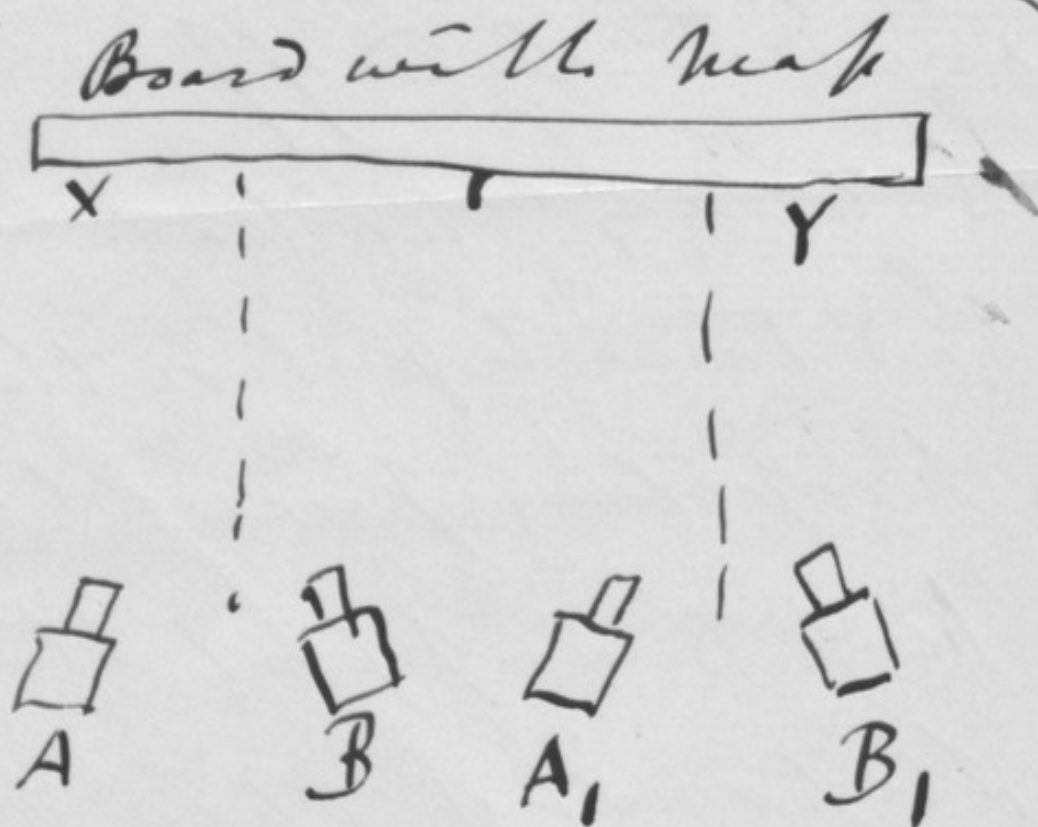 Board with map
X Y
A B A1 B1